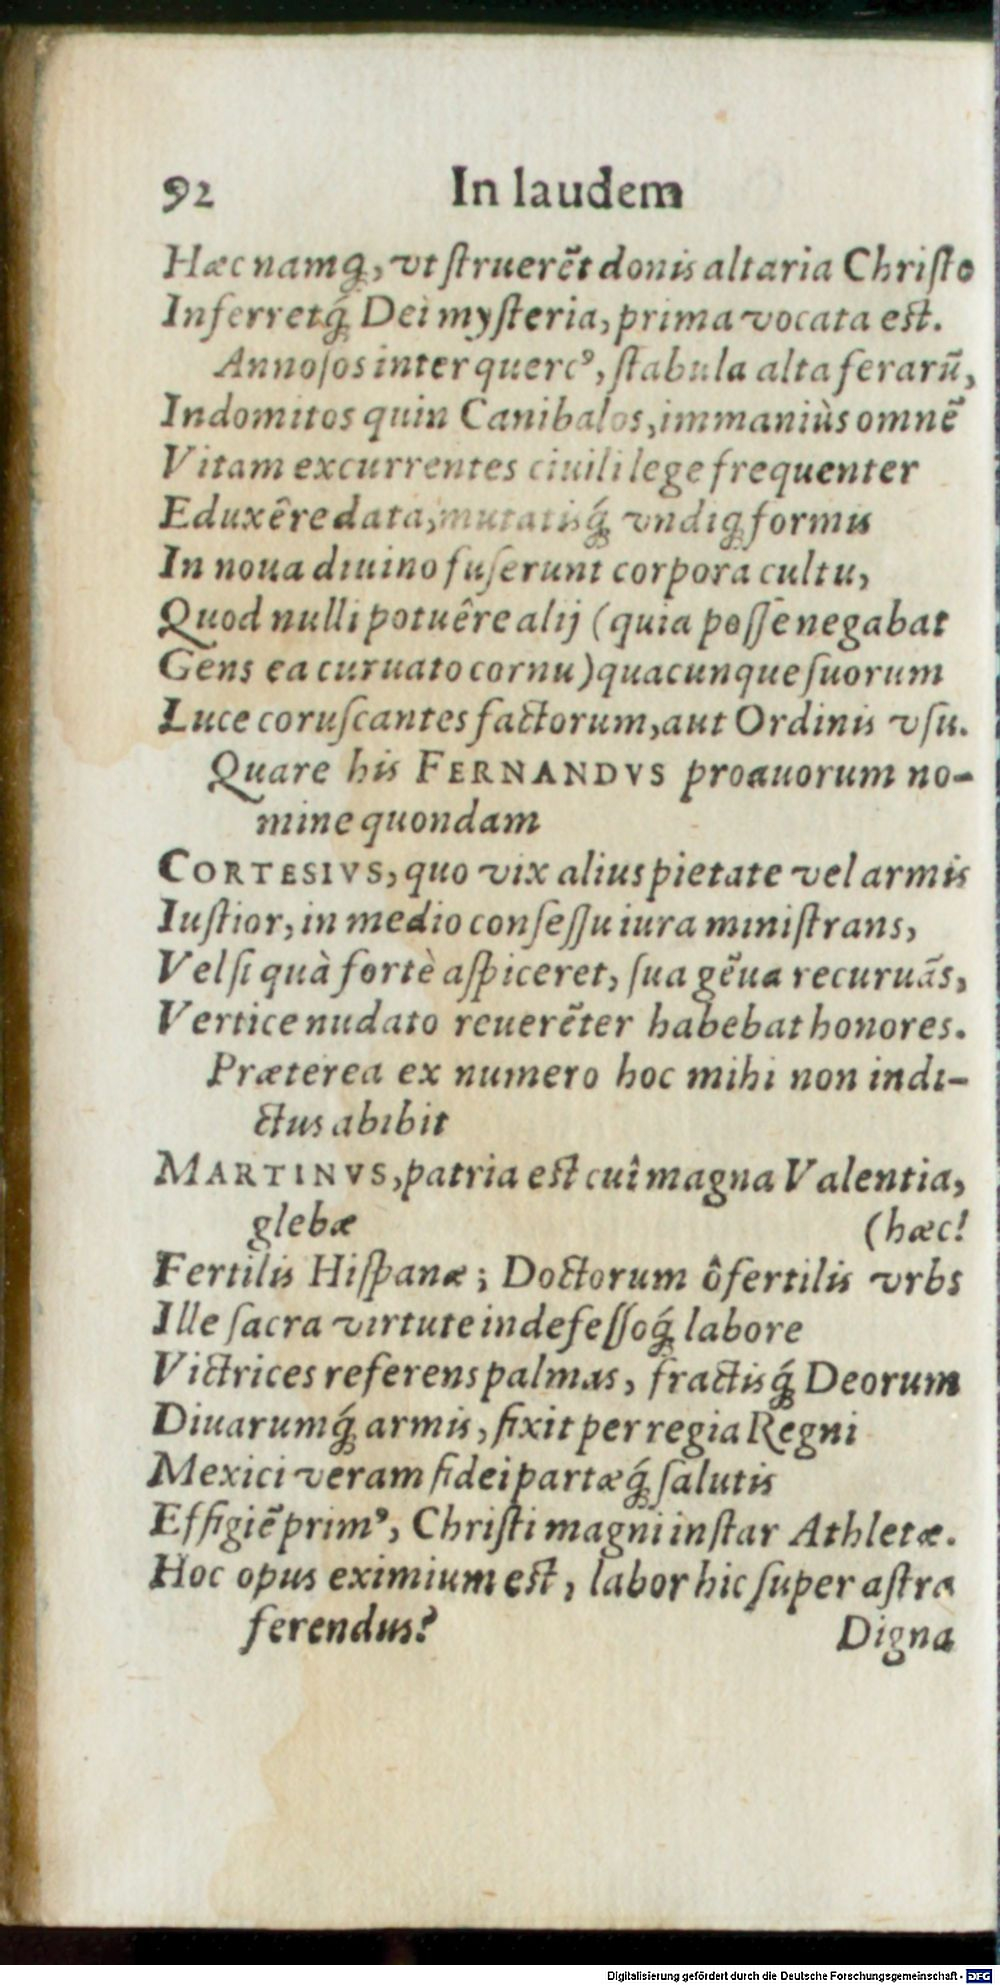 92 In laudem
Hæc namq́;, vt ſtruerẽt donis altaria Chriſto
Inferretq́; Dei myſteria, prima vocata eſt.
Annoſos inter querc⁹, ſtabula alta ferarũ,
Indomitos quin Canibalos, immaniùs omnẽ
Vitam excurrentes ciuili lege frequenter
Eduxêre data, mutatisq́; vndiq; formis
In noua diuino fuſerunt corpora cultu,
Quod nulli potuêre alij (quia poſſe negabat
Gens ea curuato cornu) quacunque ſuorum
Luce coruſcantes factorum, aut Ordinis vſu.
Quare his FERNANDVS proauorum no-
mine quondam
CORTESIVS, quo vix alius pietate vel armis
Iuſtior, in medio conſeſſu iura miniſtrans,
Vel ſi quà fortè aſpiceret, ſua gẽua recuruãs,
Vertice nudato reuerẽter habebat honores.
Præterea ex numero hoc mihi non indi-
ctus abibit
MARTINVS, patria eſt cuî magna Valentia,
glebæ (hæc!
Fertilis Hiſpanæ; Doctorum ô fertilis vrbs
Ille ſacra virtute indefeſſoq́; labore
Victrices referens palmas, fractisq́; Deorum
Diuarumq́; armis, fixit per regia Regni
Mexici veram fidei partæq́; ſalutis
Effigiẽ prim⁹, Chriſti magni inſtar Athletæ.
Hoc opus eximium eſt, labor hic ſuper aſtra
ferendus? Digna
Digitalisierung gefördert durch die Deutsche Forschungsgemeinschaft - DFG